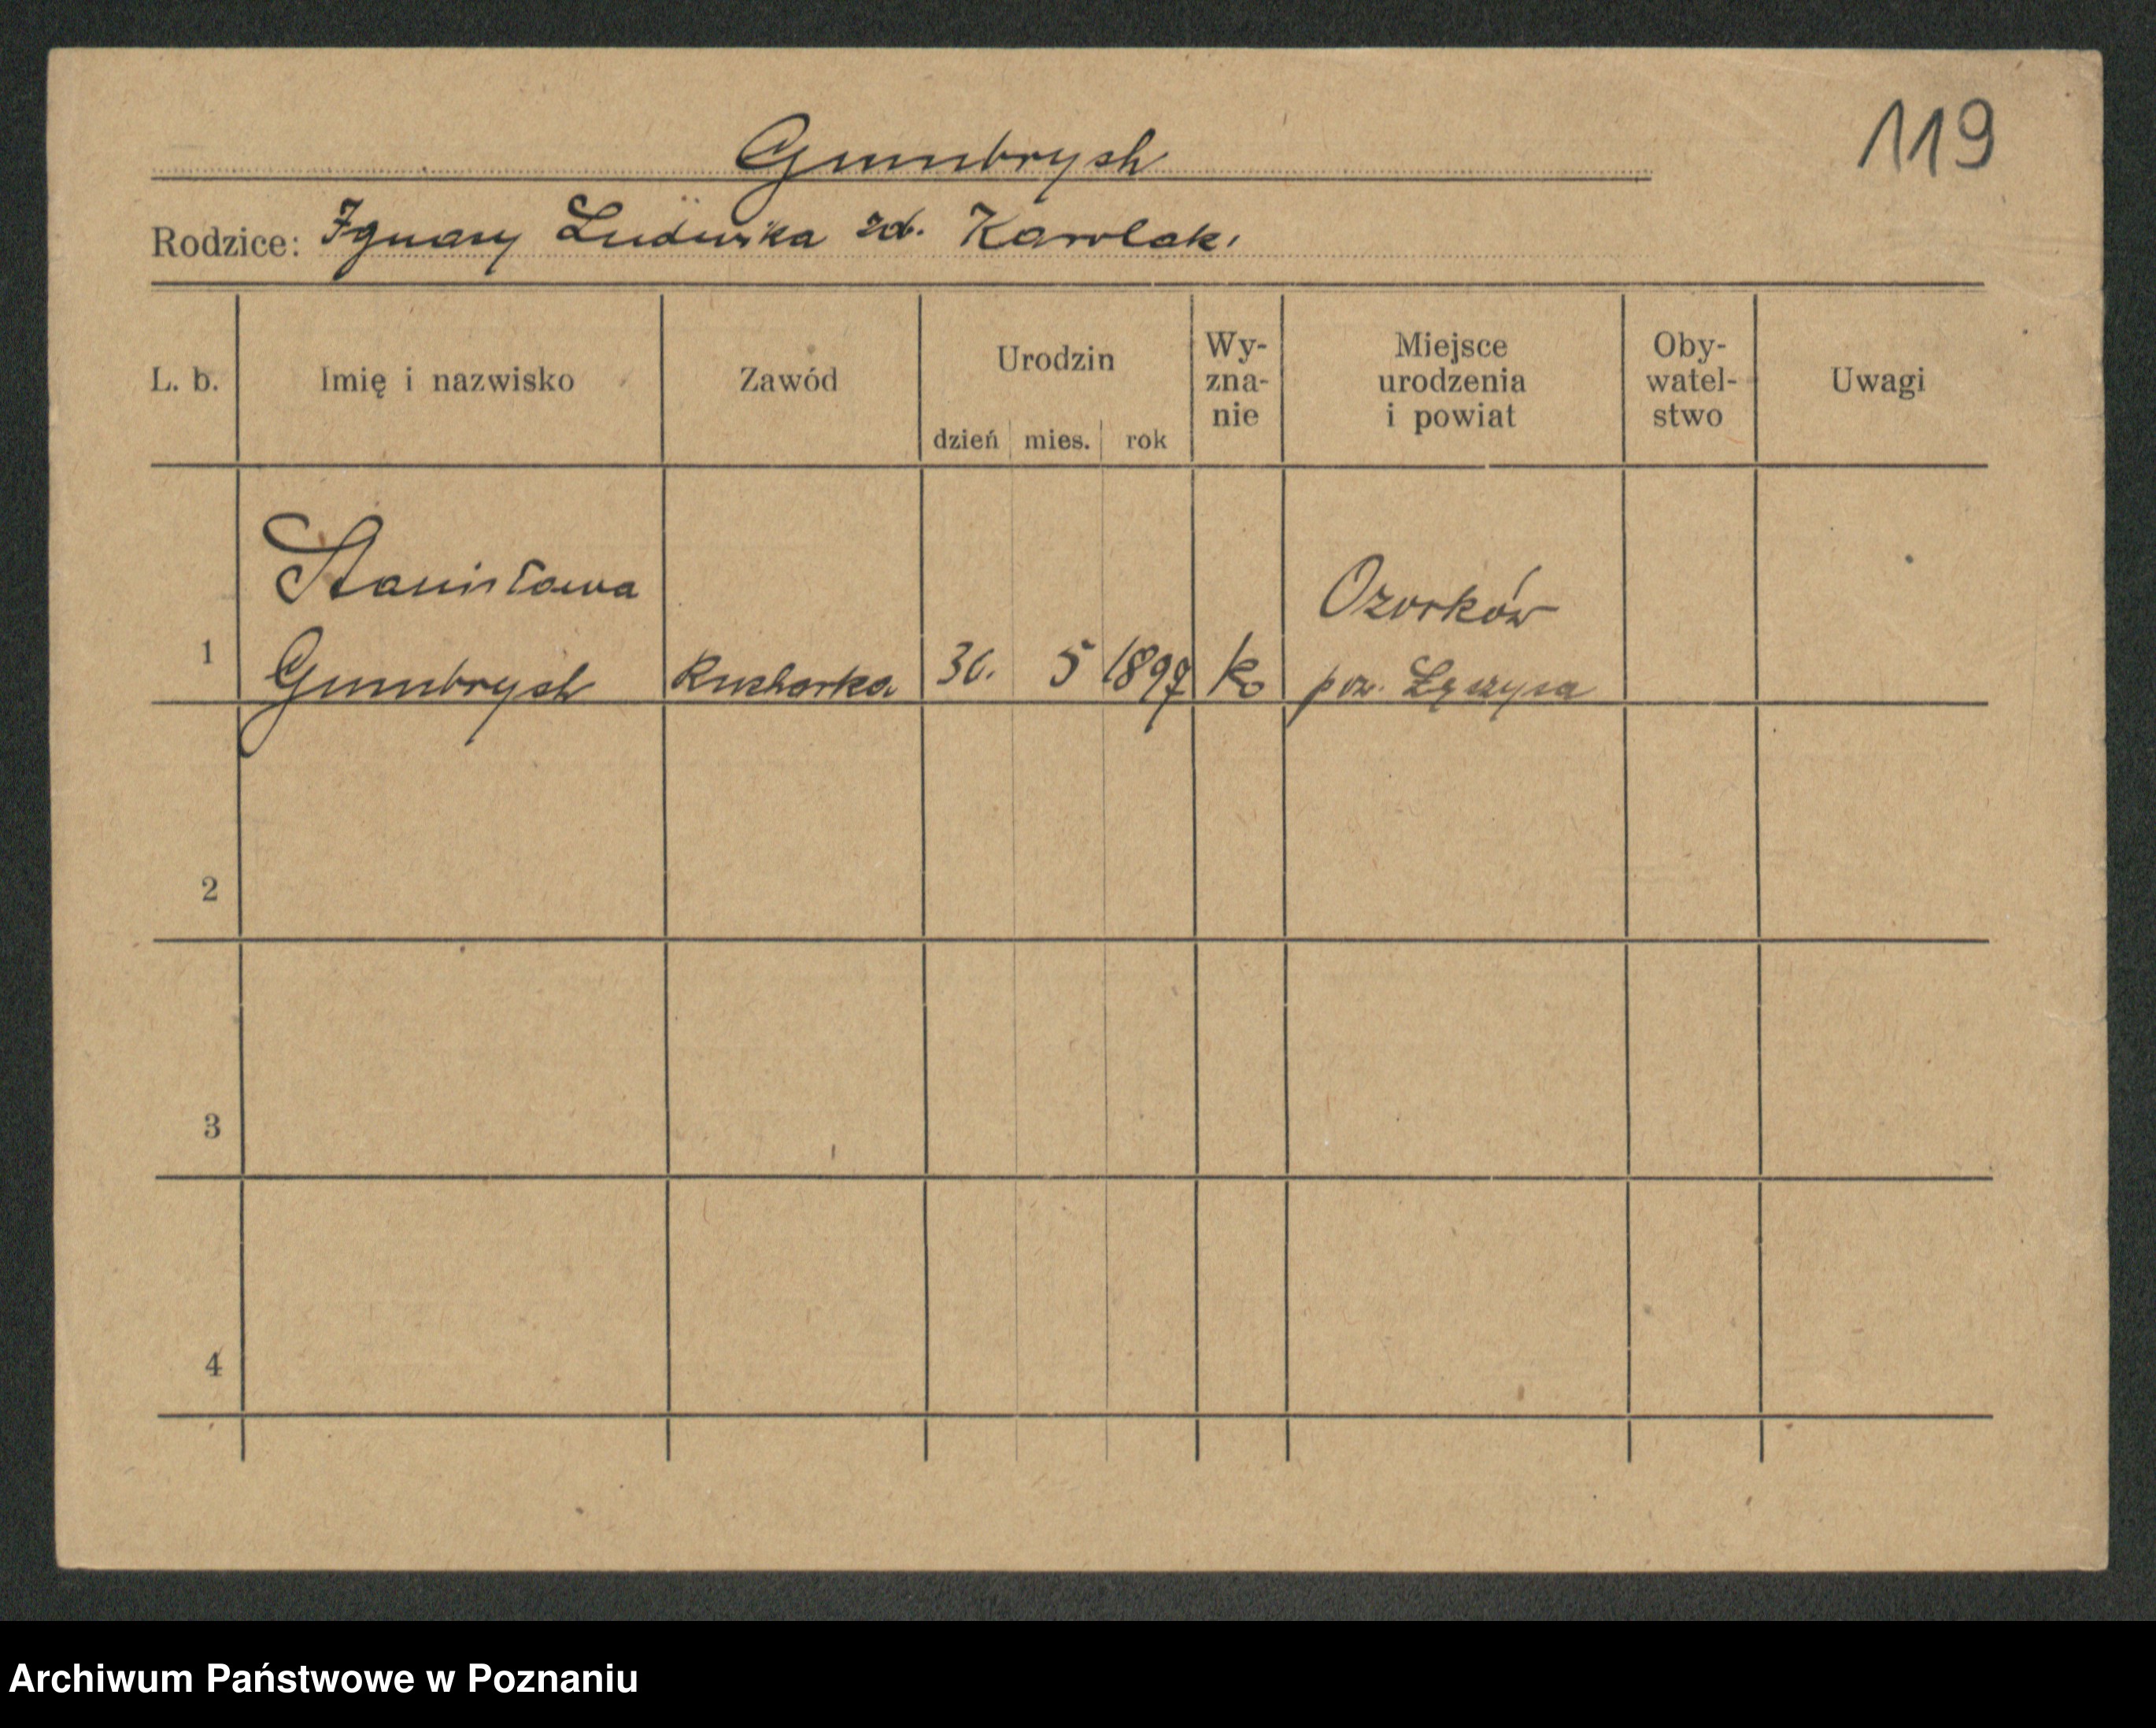 119
Gumbrych
Rodzice: Ignacy Ludwika zd. Karolak.
L. b.
Imię i nazwisko
Zawód
Urodzin
dzień mies. rok
Wy-
zna-
nie
Miejsce
urodzenia
i powiat
Oby-
watel-
stwo
Uwagi
Stanisława
1 Gumbrych
Kucharka
30. 5 1897
k.
Ozorków
pow. Łęczyca
2
3
4
Archiwum Państwowe w Poznaniu